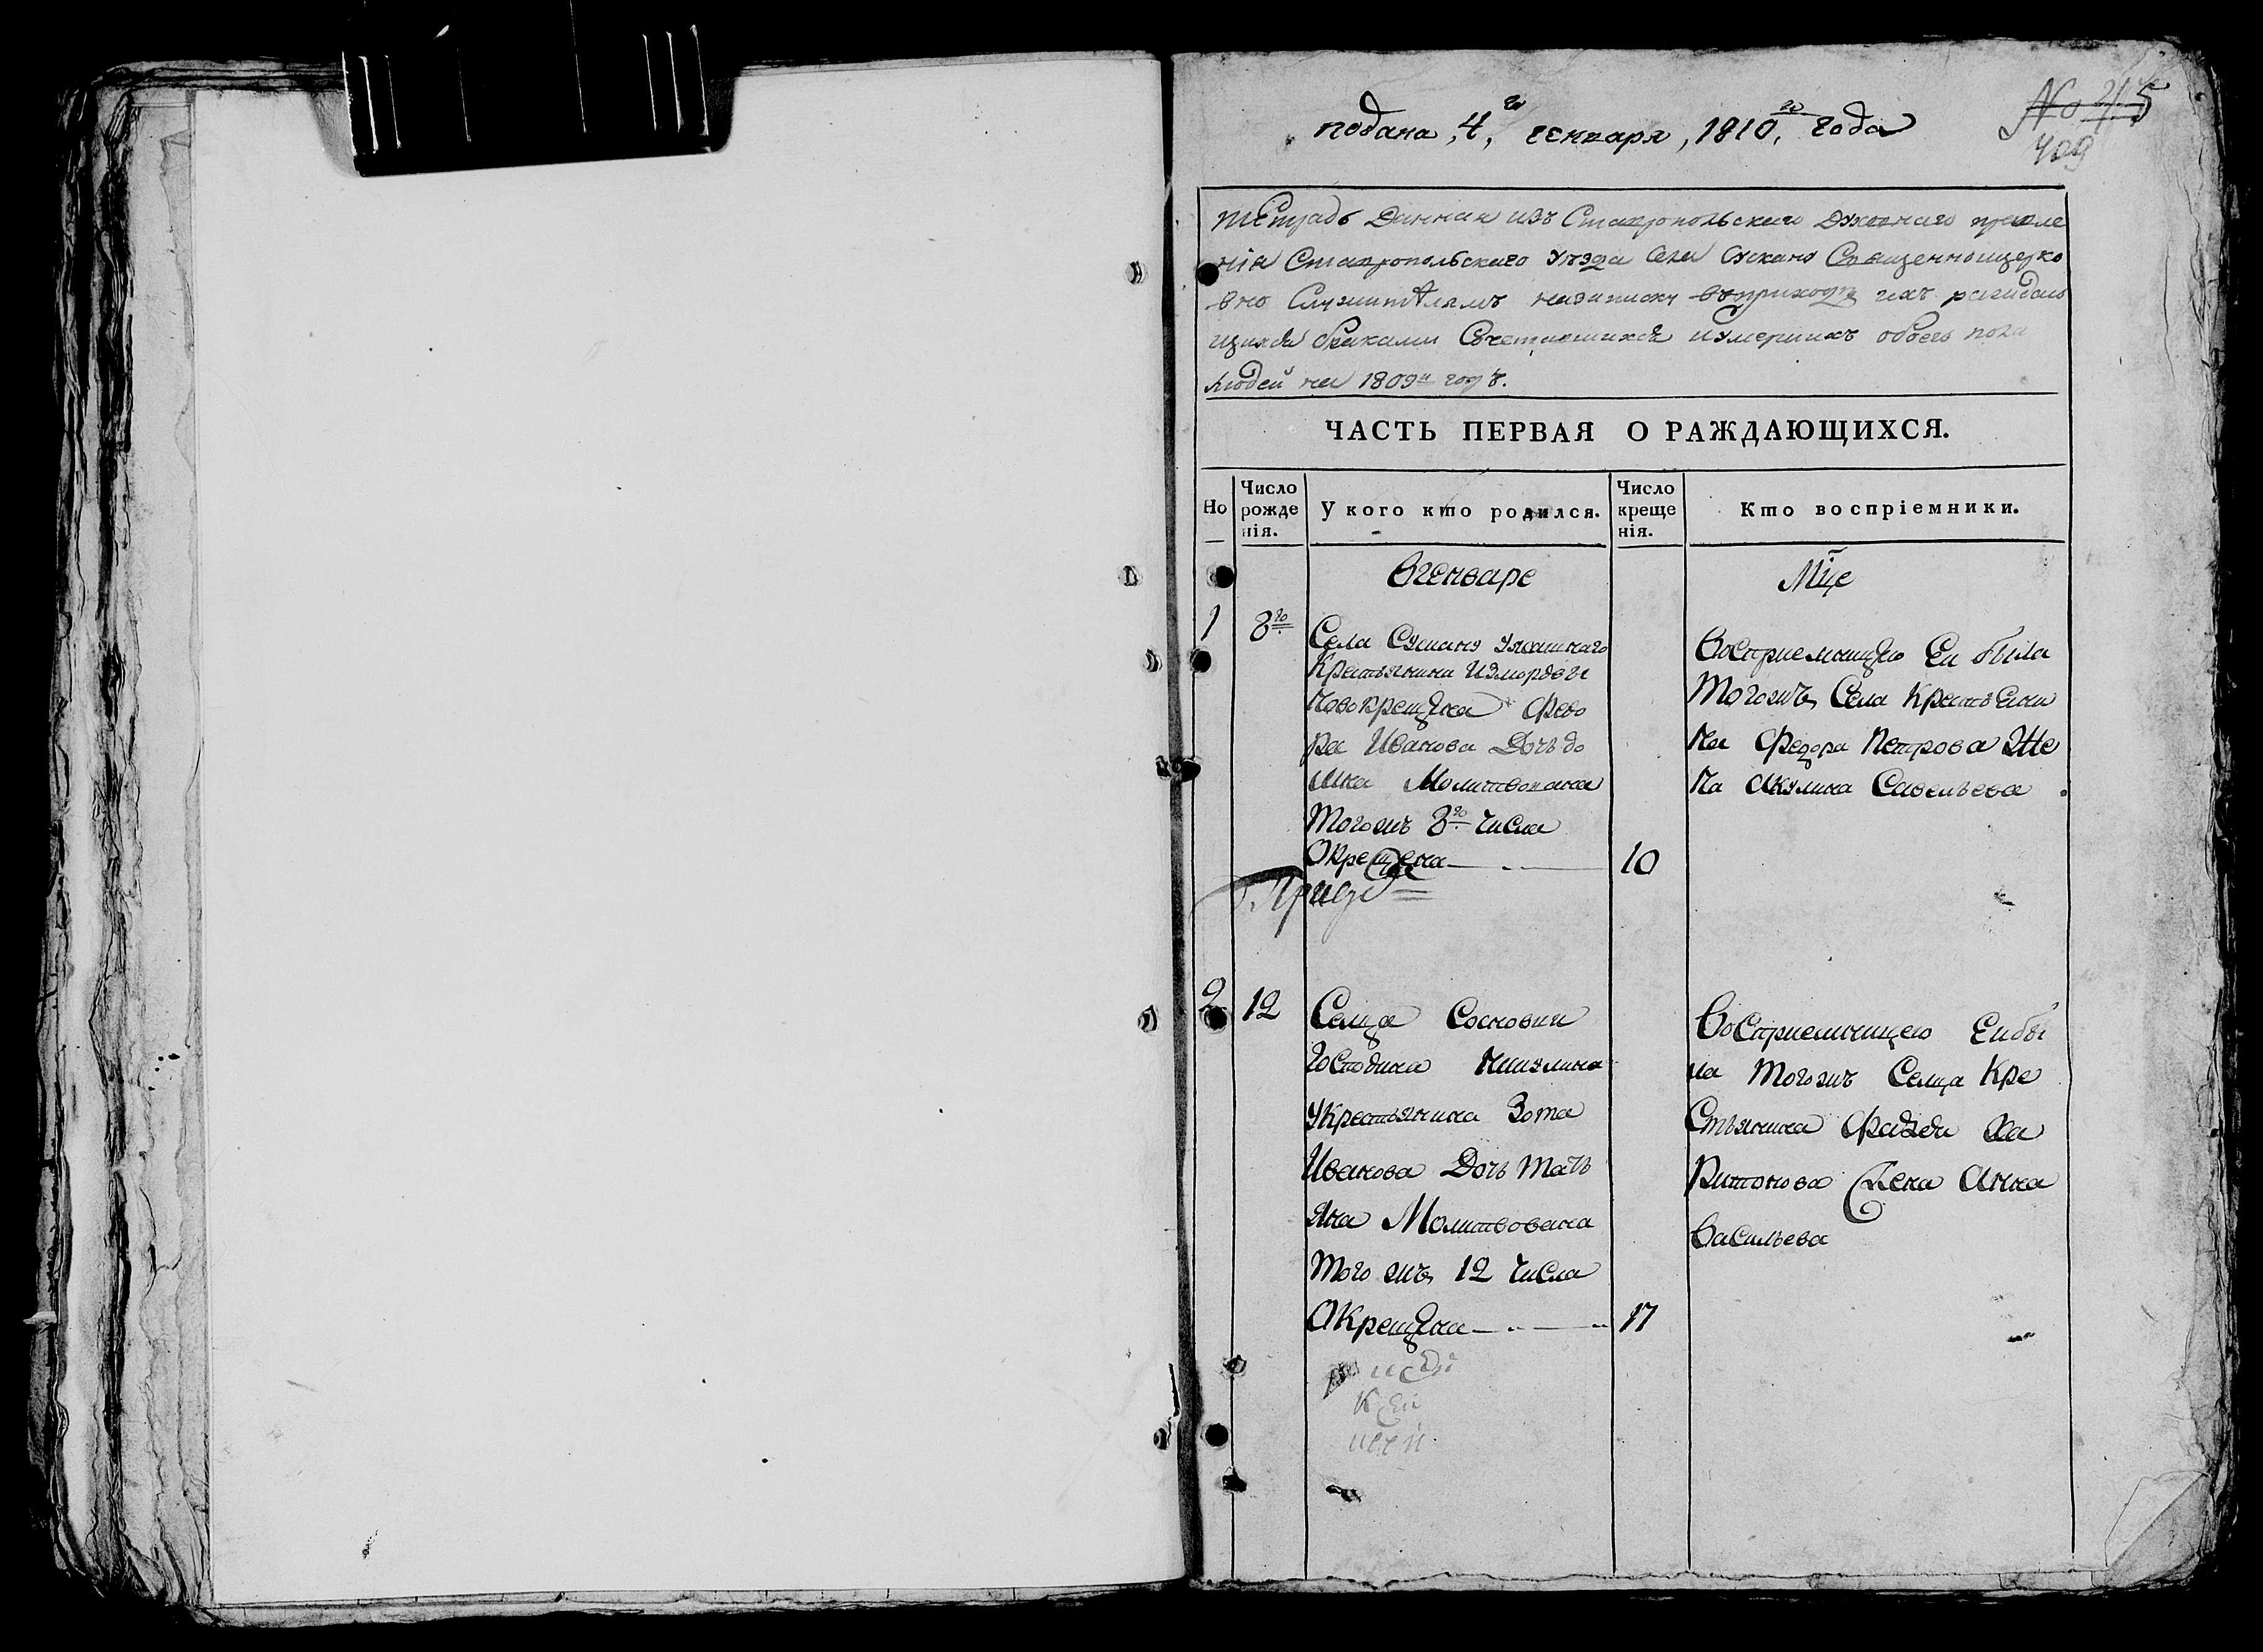 подана, 4,го генваря, 1810,го года
№ 215
409
тетрадь Данная изъ Ставропольскаго Духовнаго правле
нія Ставропольскаго уѣзда села Сускана Священноцерко
вно Служителямъ назаписку въприходѣ ихъ раждаю
щихся браками Сочетавшихся иумершихъ обоего пола
людей на 1809й годъ.
ЧАСТЬ ПЕРВАЯ О РАЖДАЮЩИХСЯ.
Но
Число рожде нія.
У кого кто родился.
Число креще нія.
Кто воспріемники.
Вгенваре
Мце
1
8го
Села Сускана уясашнаго
Крестьянина Измордвы
Новокрещена Федо
ра Иванова Дочь до
мна Молитвована
Тогожъ 8го числа
Окрещена
10
Восприемницею Ей была
Тогожъ Села Крестьени
на Федора Петрова Же
на Акулина Савельева
2
12
Селца Сосновки
Господина
укрестьянина Зота
Иванова Дочь Тать
яна Молитвована
Того жъ 12 числа
Окрещена
17
Восприемницею Ейбы
ла Тогожъ Селца Кре
стьянина Фадея Ха
ритонова Жена Анна
Васильева